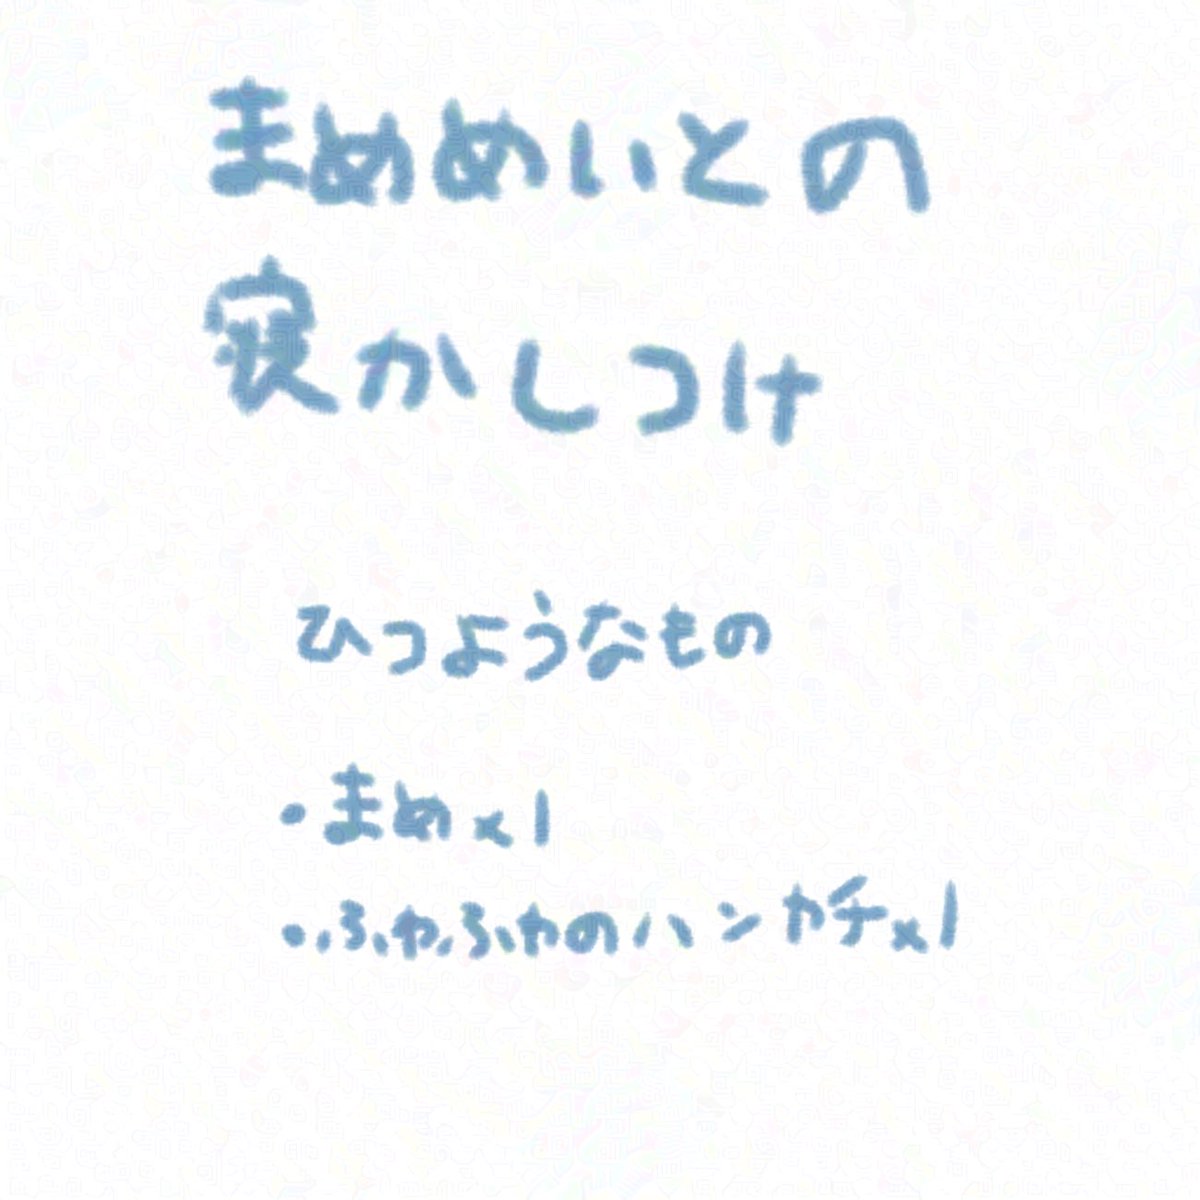 まめめいとの
寝かしつけ
ひつようなもの
・まめx1
・ふわふわのハンカチx1